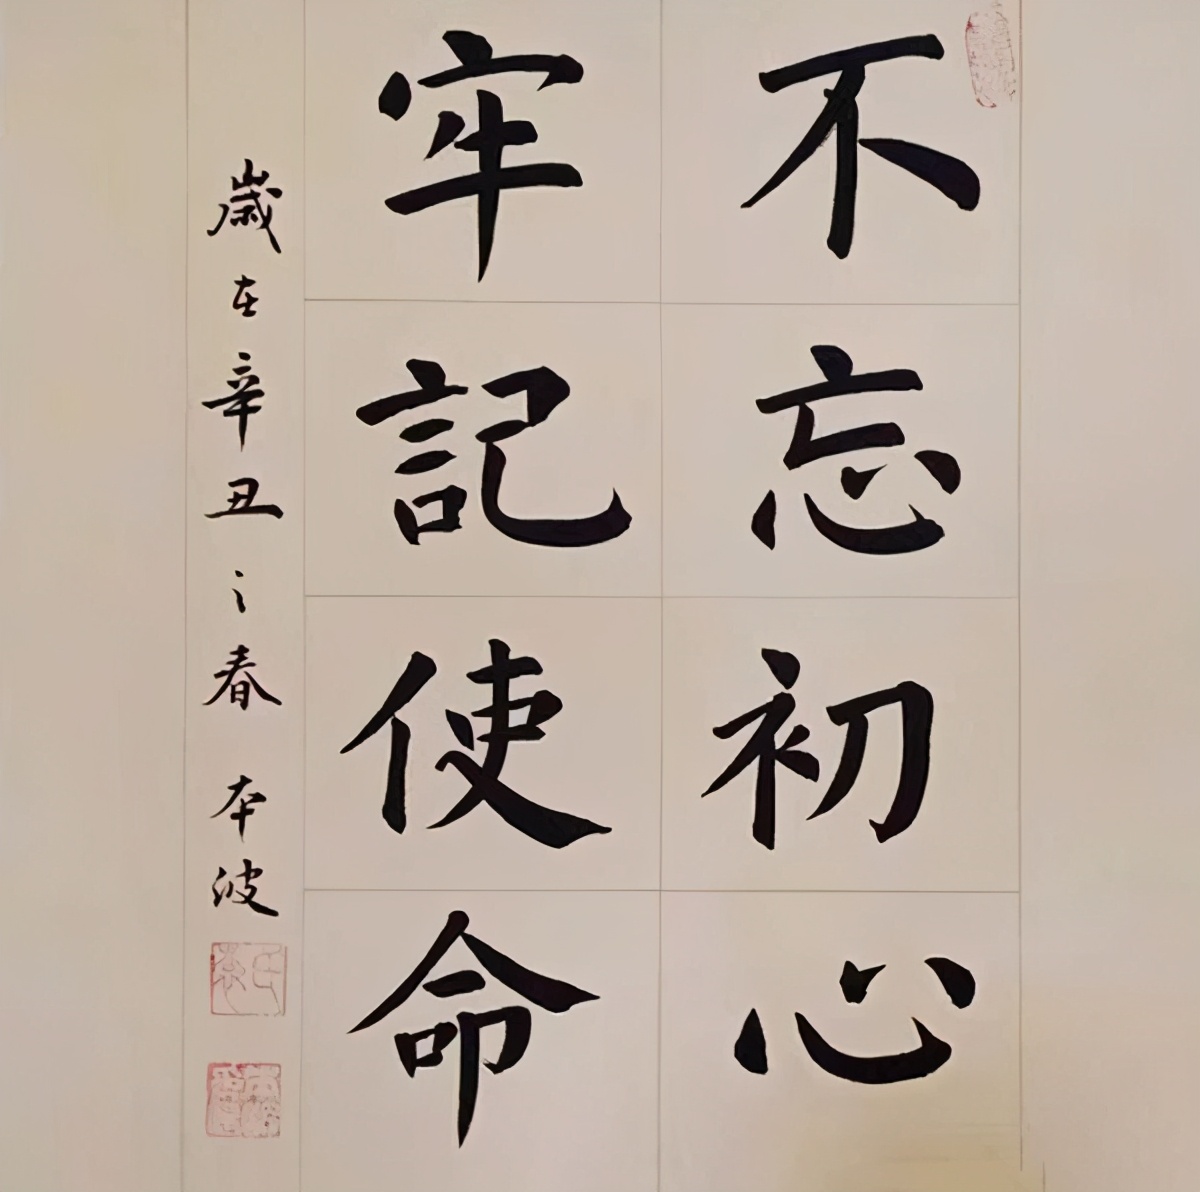 不忘初心
牢記使命
歲在辛丑之春 本波